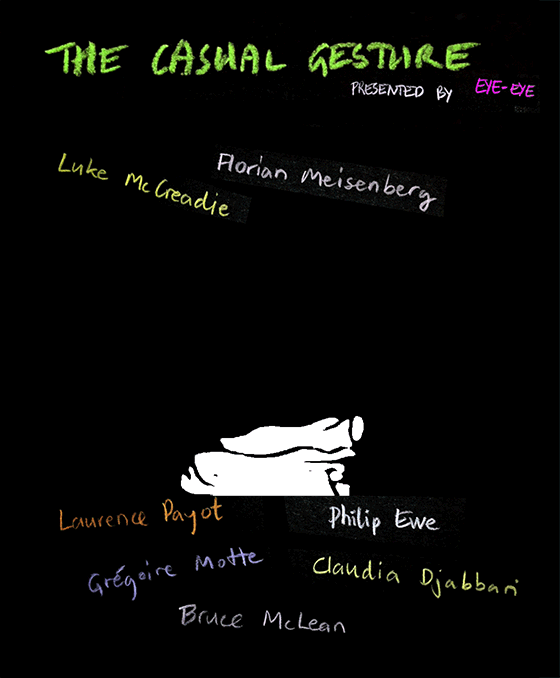 THE CASUAL GESTURE
PRESENTED BY EYE-EYE
Luke McCreadie
Florian Meisenberg
Laurence Payot
Philip Ewe
Grégoire Motte
Claudia Djabbari
Bruce McLean